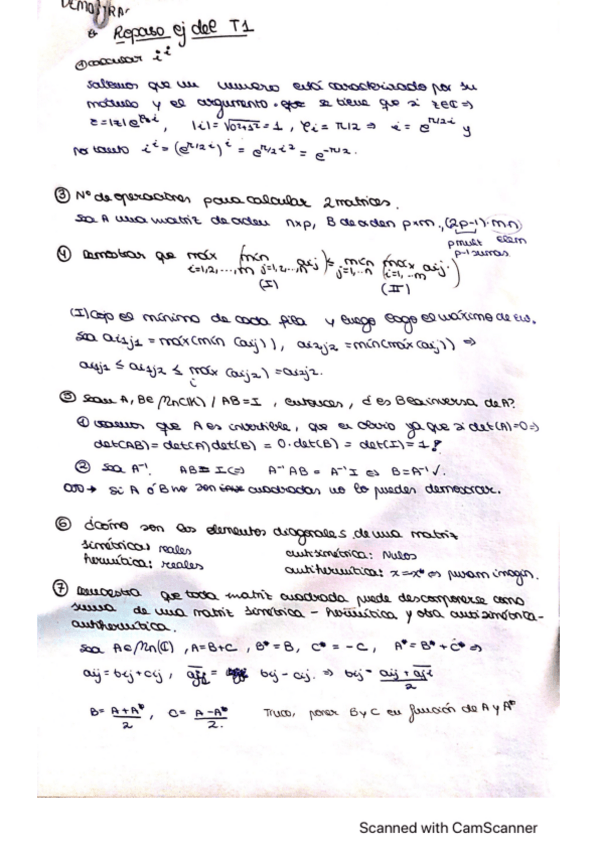 DEMOSTRAR
Repaso ej del T1
① calcular i^i
sabemos que un numero está caracterizado por su
módulo y el argumento. que se tiene que si z∈C ⇒
z=|z|e^{φi}, |i|=√(0²+1²)=1, φi=π/2 ⇒ i=e^{π/2 i} y
por tanto i^i=(e^{π/2 i})^i = e^{π/2 i²} = e^{-π/2}.
③ Nº de operaciones para calcular 2 matrices.
sea A una matriz de orden nxp, B de orden pxm, (2p-1)·mn
p mult elem
p-1 sumas
④ Demostrar que máx (mín aij) ≤ mín (máx aij)
i=1,2,...,m j=1,2,...,n j=1,...n i=1,...m
(I) (II)
(I) Cojo el mínimo de cada fila y luego cojo el máximo de
sea ai1j1 = máx(mín(aij)), ai2j2 = mín(máx(aij)) ⇒
ai1j1 ≤ ai1j2 ≤ máx (aij2) = ai2j2.
i
⑤ Sean A, B∈ Mn(K) / AB=I, entonces, ¿es B la inversa de A?
① veamos que A es invertible, que es obvio ya que si det(A)=0⇒
det(AB)=det(A)det(B) = 0·det(B) = det(I)=1 !
② sea A⁻¹. AB=I ⇔ A⁻¹AB = A⁻¹I ⇔ B=A⁻¹ ✓.
→ Si A ó B no son cuadradas no lo puedes demostrar.
⑥ ¿Cómo son los elementos diagonales de una matriz
simétrica: reales antisimétrica: Nulos
hermítica: reales antihermítica: x=-x* es puram imagin.
⑦ Demuestra que toda matriz cuadrada puede descomponerse como
suma de una matriz simétrica - hermítica y otra antisimétrica-
antihermítica.
Sea A∈Mn(C), A=B+C, B*=B, C*=-C, A*=B*+C* ⇒
aij = bij + cij, aji = bij - cij. ⇒ bij = (aij + aji)/2
B= (A+A*)/2, C= (A-A*)/2. Truco, poner B y C en función de A y A*
Scanned with CamScanner